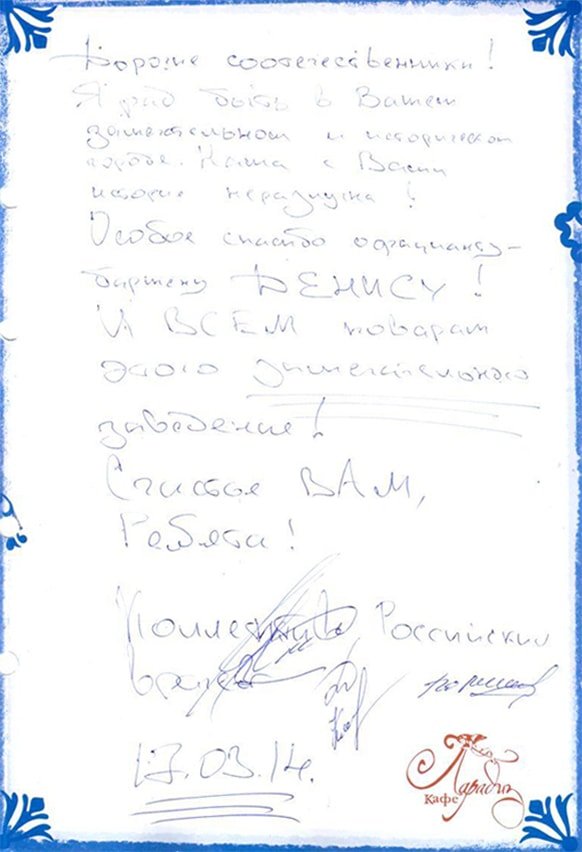 Дорогие соотечественники!
Я рад быть в Вашем
замечательном и историческом
городе. Наша с Вами
история неразлучна!
Особое спасибо официанту-
бармену ДЕНИСУ!
И ВСЕМ поварам
этого замечательного
заведение!
Счастья ВАМ,
Ребята!
Коллектив Российских
17.03.14.
Кафе Парадиз